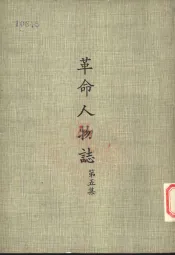 革命人物誌
第五集